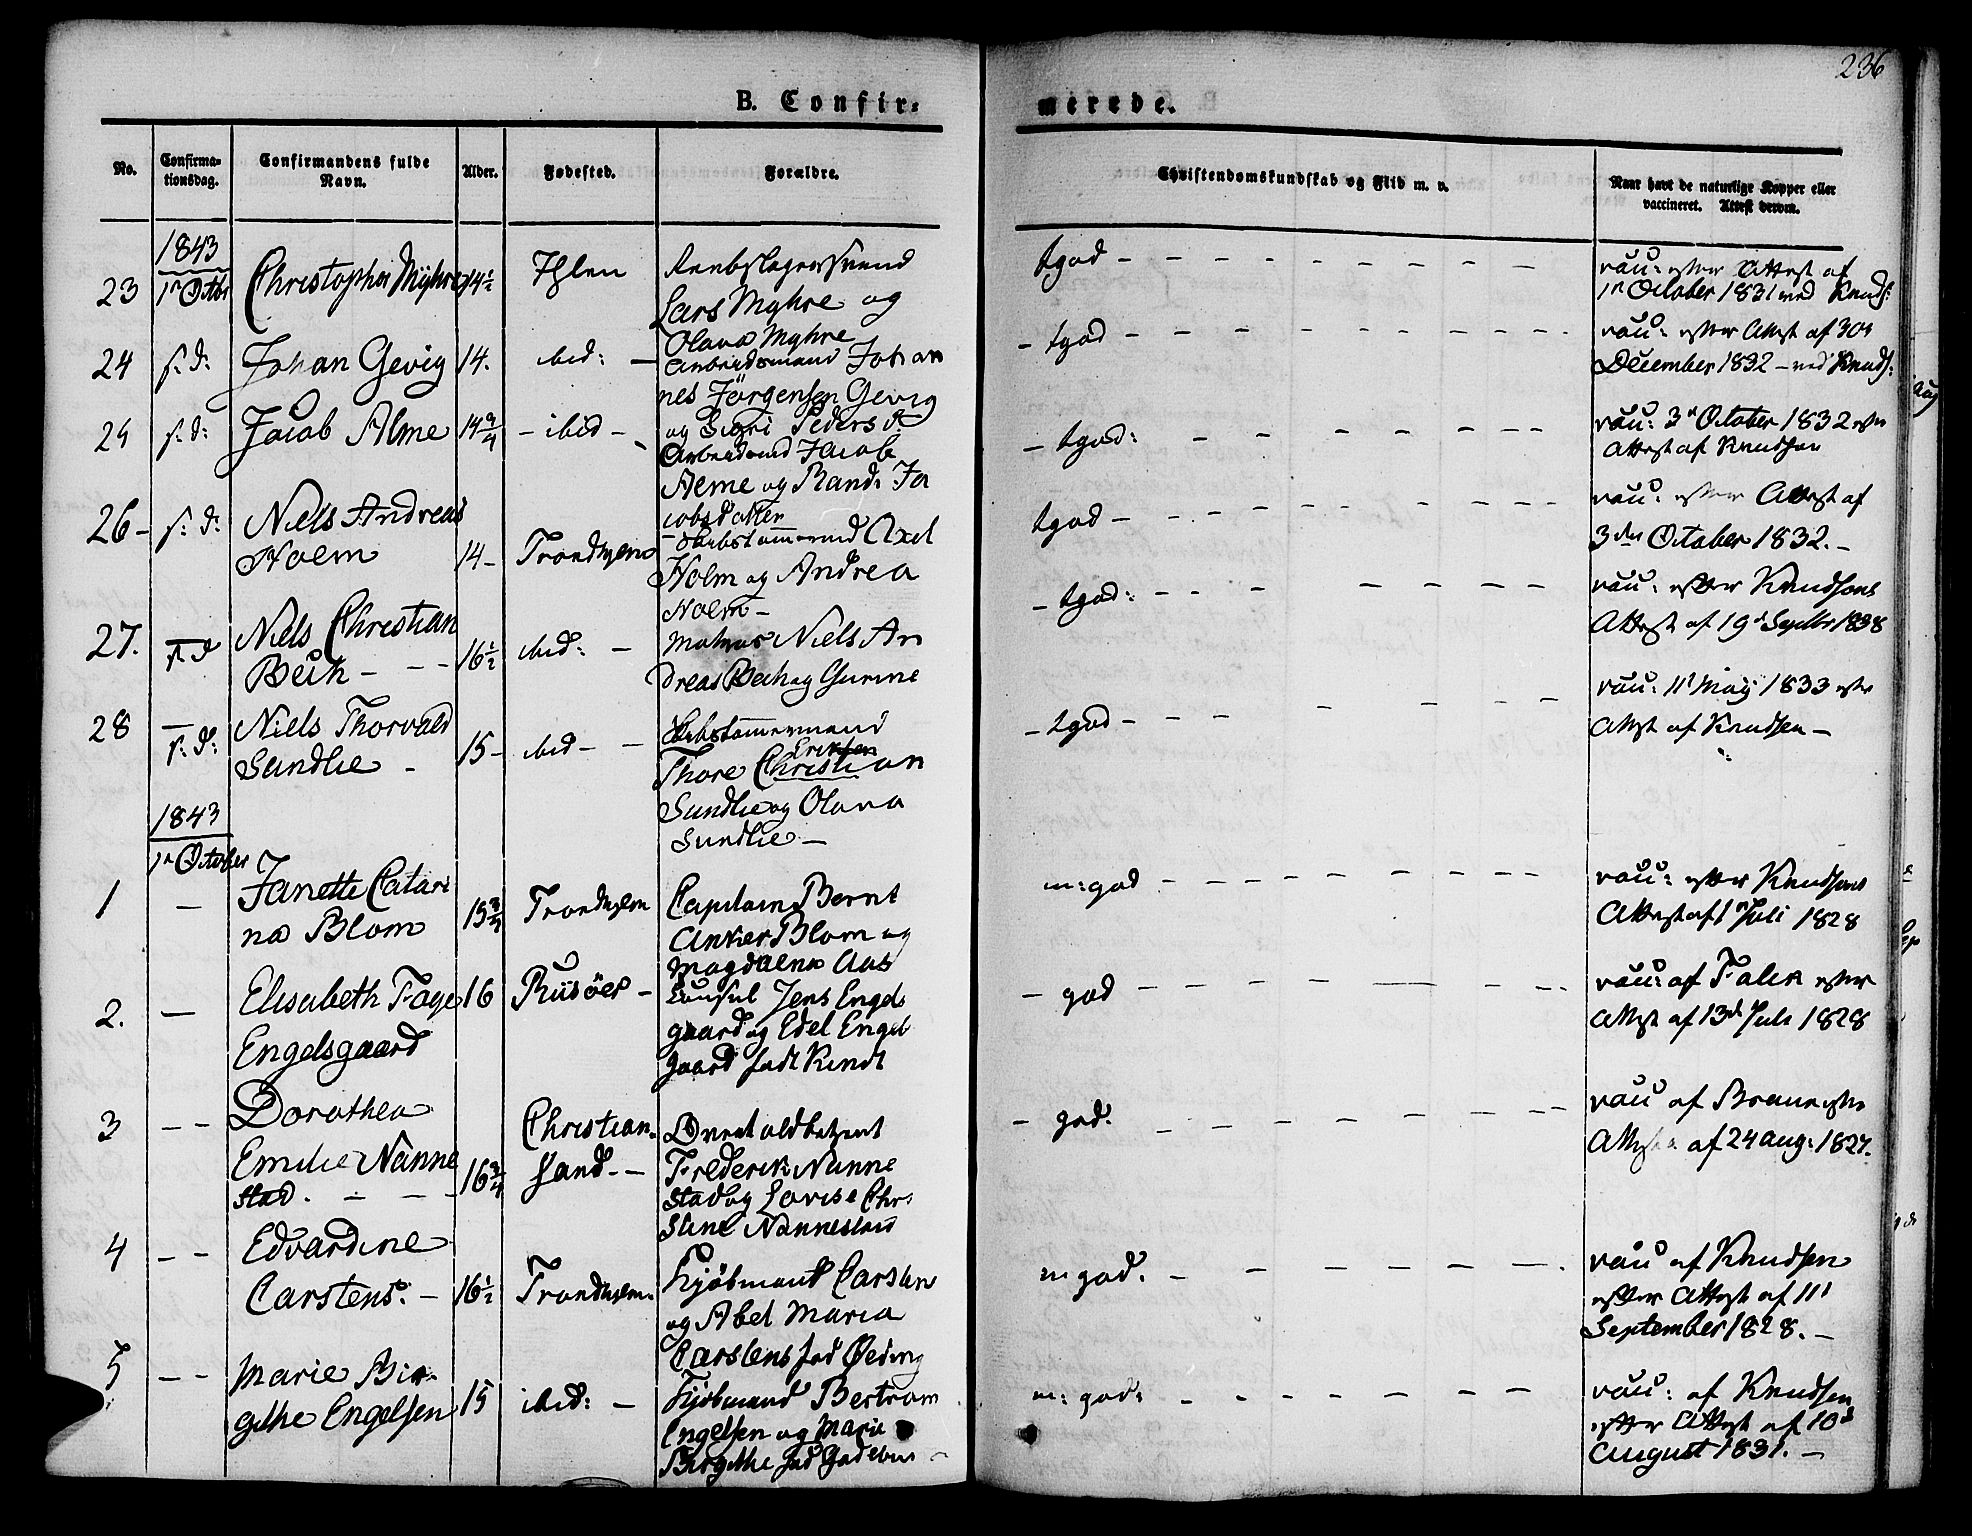 236
B. Confir=
merede.
No.
Confirma-
tionsdag.
Confirmandens fulde
Navn.
Alder.
Fødested.
Forældre.
Christendomskundskab og Flid m. v.
Naar havt de naturlige Kopper eller
vaccineret. Attest derom.
1843
23 1n Octbr Christopher Myhre 14½ Ihlen
Lars Myhre og
Olava Myhre
tgod - - - - - - - -
vac: efter Attest af
1n October 1831 ved Knuds:
24 s: d: Johan Gevig 14. ibid: -
Arbeidsmand Johan
nes Jörgensen Gevig
og Sigri Pedersd
- tgod - - - - - - - -
vac: efter Attest af 30s
December 1832 - ved Knuds:
25 s: d: Jacob Alme 14¾ - ibid -
Arbeidsmd Jacob
Alme og Randi Ja
cobsdatter
- tgod: - - - - - - -
vac: 3d October 1832 efter
Attest af Knudsen
26 - s: d: Niels Andreas
Holm 14 - Trondhjem
Axel
Holm og Andrea
Holm -
tgod - - - - - - - -
vac: efter Attest af
3die October 1832. -
27. s. d Niels Christian
Beck - - - 16½ ibid: -
Matros Niels An
dreas Bech og Gurine
- tgod: - - - - - - -
vac: efter Knudsens
Attest af 19d Septbr 1838
28 s: d: Niels Thorvald
Sundlie - 15 - ibid - -
Eriksen
Thore Christian
Sundlie og Olava
Sundlie -
- tgod - - - - - -
vac: 11t May 1833 efter
Attest af Knudsen -
1843
1n October
1 - Janette Catari
na Blom 15¾ Trondhjem
Capitain Bernt
Anker Blom og
Magdalena Aas
m: god - - - - - - - -
vac: efter Knudsens
Attest af 1n Juli 1828
2. - Elisabeth Faye 16 Riisöer -
Engelsgaard
Consul Jens Engels
gaard og Edel Engel
gaard född Kindt
- god - - - - - - - -
vac: af Falck efter
Attest af 13de Juli 1828
3 - - Dorothea
Emilie Nanne
stad. - - - 16¾ Christian-
sand - -
Frederik Nanne
stad og Lovise Chri
stine Nannestad
- god. - - - - - - - -
vac af Braun efter
Attest af 24 Aug: 1827.
4 - - Edvardine
Carstens. - 16½ Trondhjem.
Kjöbmand Carsten
og Abel Maria
Carstens fød Øeding
m god. - - - - - - -
vac af Knudsen
efter Attest af 11t
September 1828. -
5 - - Marie Bir-
githe Engelsen 15 ibid: -
Kjöbmand Bertram
Engelsen og Marie
Birgithe fød
m: god: - - - - - - -
vac: af Knudsen
efter Attest af 10d
August 1831. -